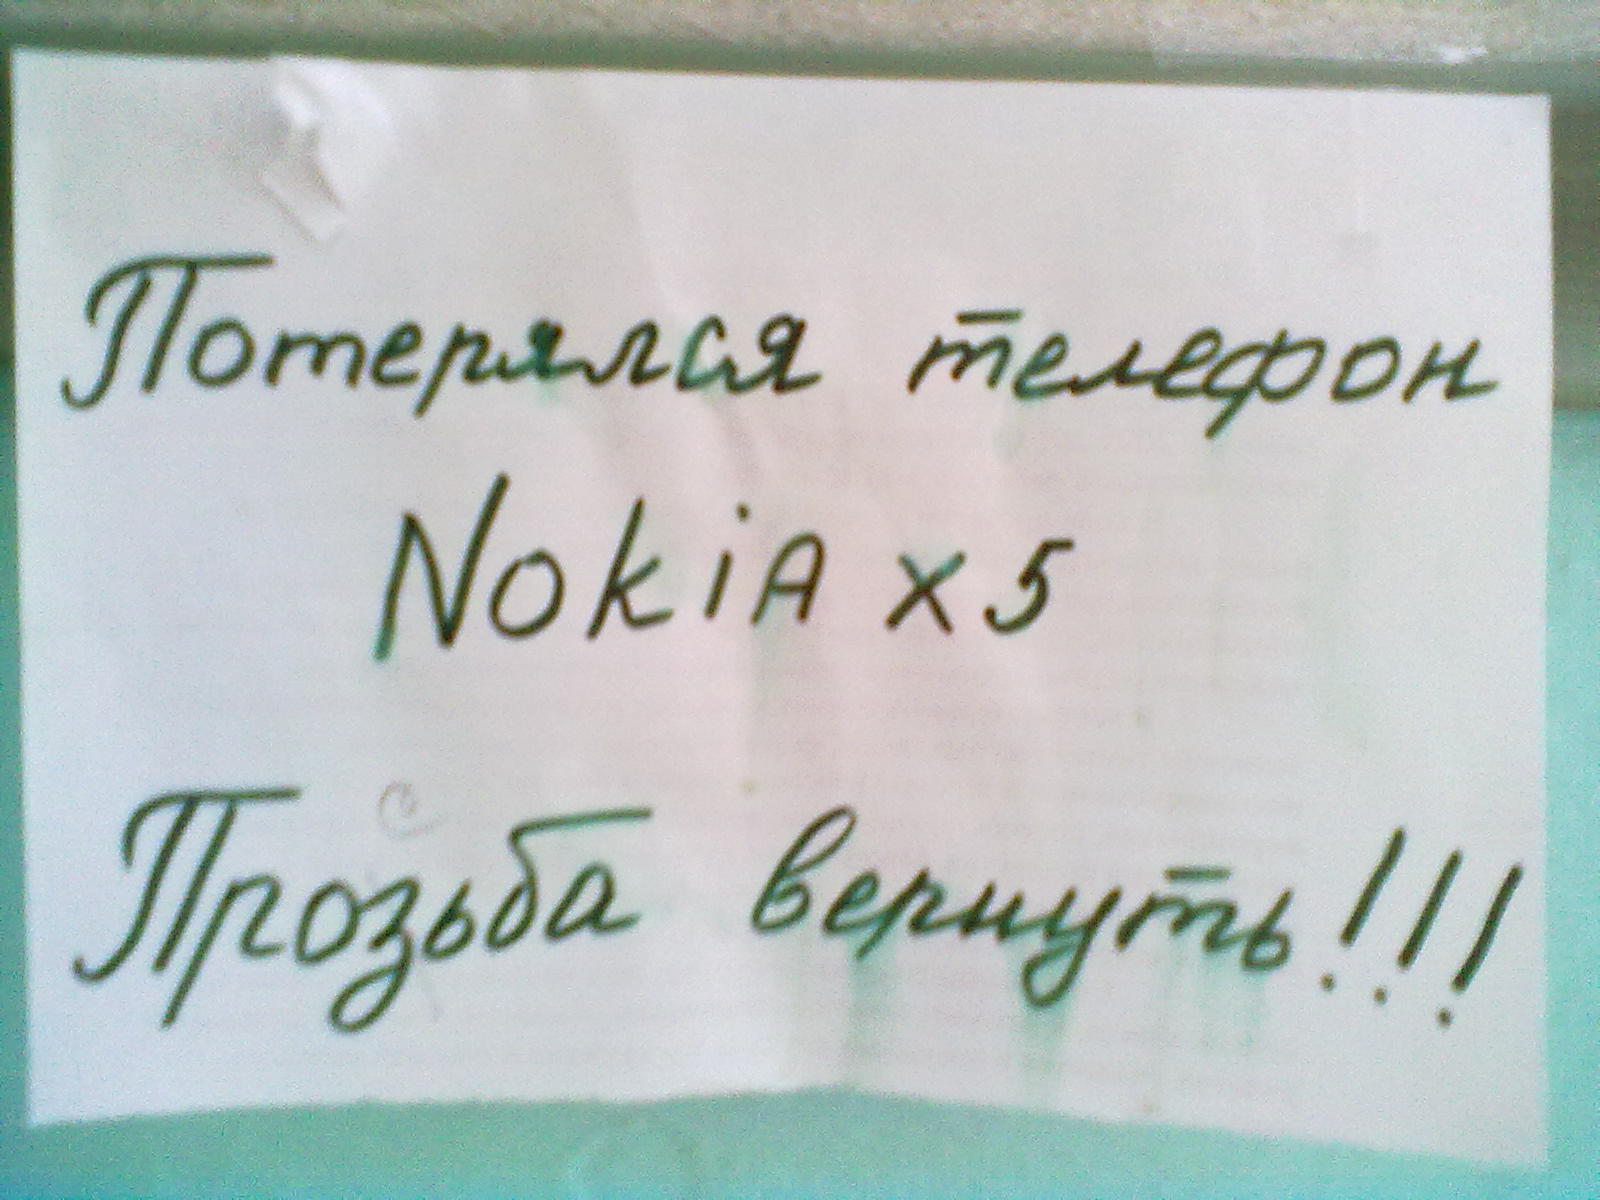 Потерялся телефон
NokiA x5
с
Прозьба вернуть!!!